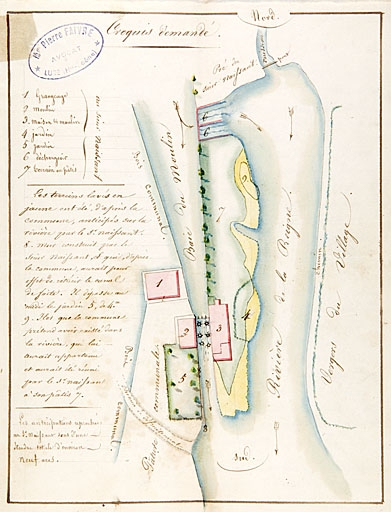 Nord.
Croquis demandé.
Me Pierre FAIVRE
AVOCAT
LURE
1 Grangeage
2 moulin
3 maison de moulin
4 jardin
5 jardin
6 déchargeoir
7
au sieur
Les terrains lavés en
jaune ont été, d'après la
commune, anticipés sur la
rivière par le Sr naissant.
8 mur construit par le
sieur naissant et qui, d'après
la commune, aurait pour
effet de
le jardin 5, à 4.
9 Ilot que la commune
prétend avoir existé dans
la rivière, qui lui
aurait appartenu
et aurait été réuni
par le Sr naissant
à son patis 7.
Les anticipations reprochées
au Sr Naissant sont d'une
étendue totale d'environ
neuf ares.
Pré du
sieur naissant
Bief du Moulin
Pré Communal
Passage communal
Communal
Rivière de la Reigne
Chemin
Vergers du Village
Sud.
1
2
3
4
5
6
6
7
8
9